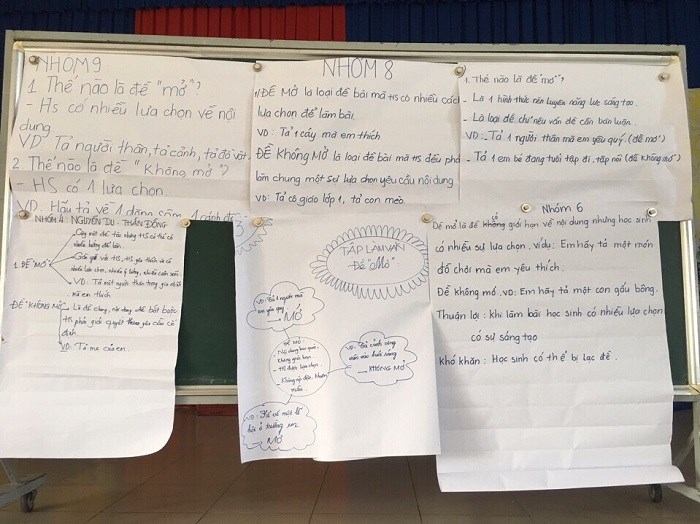 NHÓM 9
1. Thế nào là đề "mở"?
- HS có nhiều lựa chọn về nội
dung.
VD: Tả người thân, tả cảnh, tả đồ vật.
2. Thế nào là đề "Không mở"?
- HS có 1 lựa chọn.
VD: Hãy tả về 1 dòng sông, 1 cánh đồng
NHÓM 8
1/ ĐỀ Mở là loại đề bài mà HS có nhiều cách
lựa chọn để làm bài.
VD: Tả 1 cây mà em thích
ĐỀ KHÔNG MỞ là loại đề bài mà HS đều phải
làm chung một sự lựa chọn yêu cầu nội dung
VD: Tả cô giáo lớp 1, tả con mèo.
1. Thế nào là đề "mở"?
- Là 1 hình thức rèn luyện năng lực sáng tạo.
- Là loại đề chỉ nêu vấn đề cần bàn luận.
VD: - Tả 1 người thân mà em yêu quý. (đề mở)
- Tả 1 em bé đang tuổi tập đi, tập nói (đề không mở)
NHÓM 4: NGUYỄN DU - THẦN ĐỒNG
1. ĐỀ "MỞ"
VD: Tả một người thân trong gia đình
mà em thích.
ĐỀ "KHÔNG MỞ"
HS phải giải quyết theo yêu cầu cố
định.
VD: Tả mẹ của em.
3
TẬP LÀM VĂN
Đề "Mở"
VD: Tả 1 người mà
em yêu quý
MỞ
ĐỀ MỞ
Không giới hạn
- HS được lựa chọn
VD: Tả cảnh công
viên vào buổi sáng
KHÔNG MỞ
MỞ
Nhóm 6
Đề mở là đề không có giới hạn về nội dung nhưng học sinh
có nhiều sự lựa chọn. ví dụ: Em hãy tả một món
đồ chơi mà em yêu thích.
Đề không mở. VD: Em hãy tả một con gấu bông.
Thuận lợi: khi làm bài học sinh có nhiều lựa chọn
có sự sáng tạo
Khó khăn: Học sinh có thể bị lạc đề.